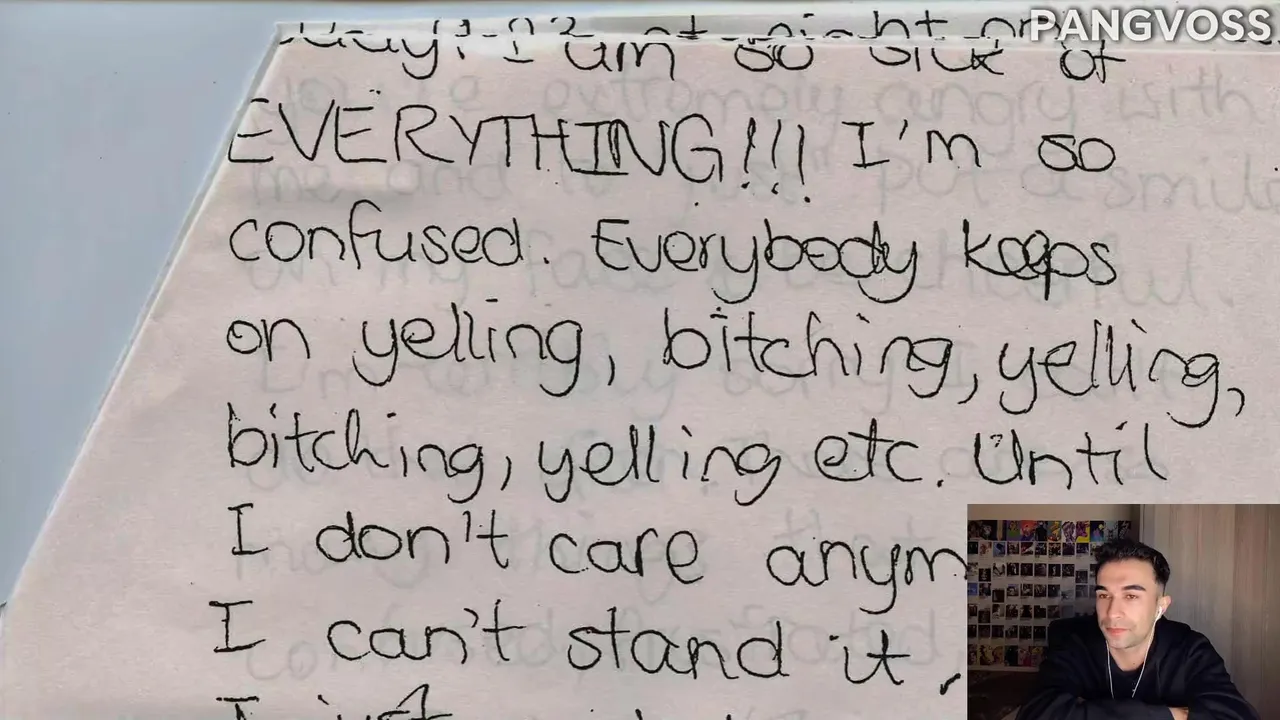 PANGVOSS
I am so sick of
EVERYTHING!!! I'm so
confused. Everybody keeps
on yelling, bitching, yelling,
bitching, yelling etc. Until
I don't care anym
I can't stand it,
I just